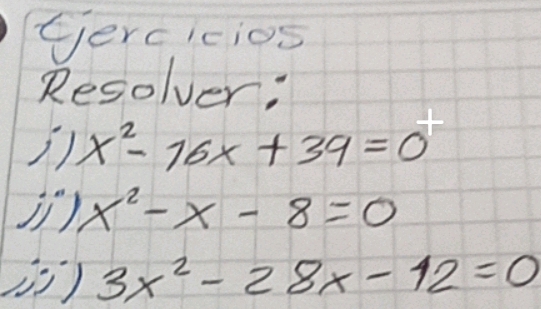 Ejercicios
Resolver:
i) x² - 16x + 39 = 0
ii) x² - x - 8 = 0
iii) 3x² - 28x - 12 = 0